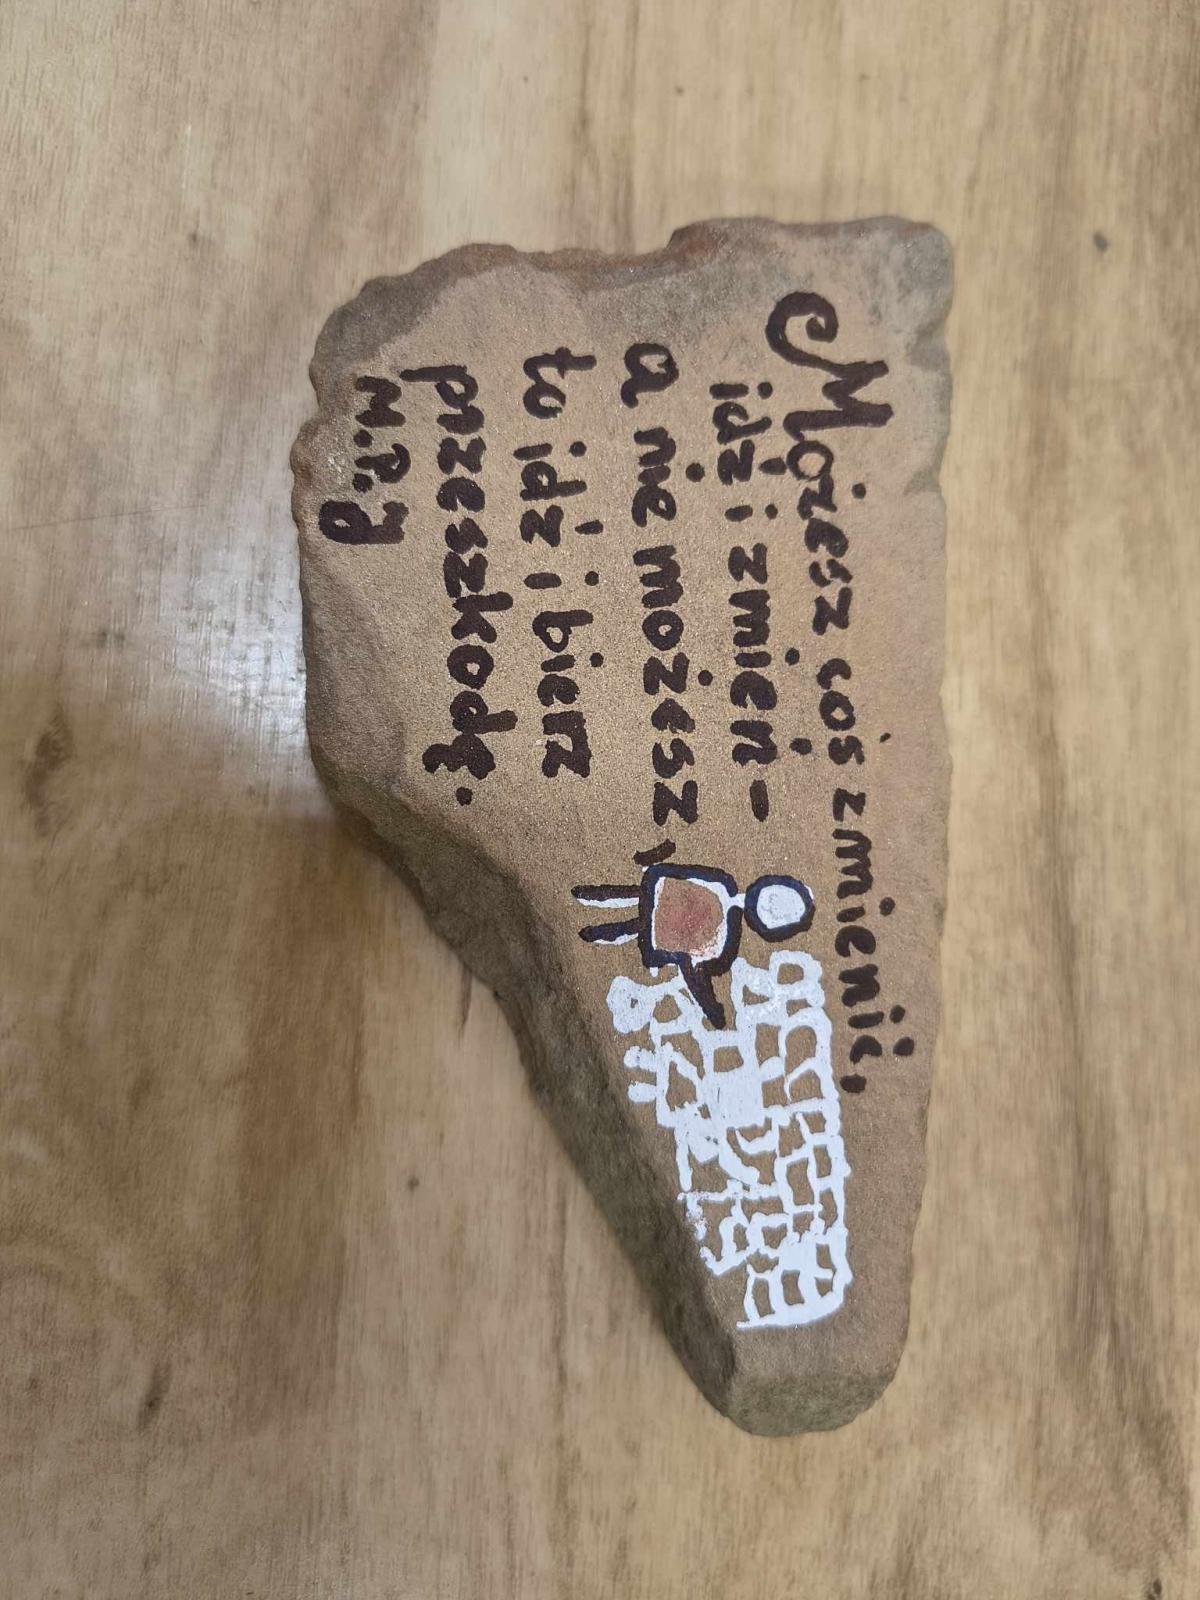 Możesz coś zmienić,
idź i zmień -
a nie możesz,
to idź i bierz
przeszkodę.